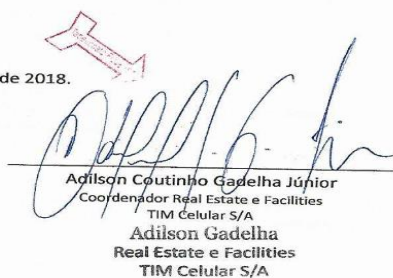 de 2018.
Adilson Coutinho Gadelha Júnior
Coordenador Real Estate e Facilities
TIM Celular S/A
Adilson Gadelha
Real Estate e Facilities
TIM Celular S/A